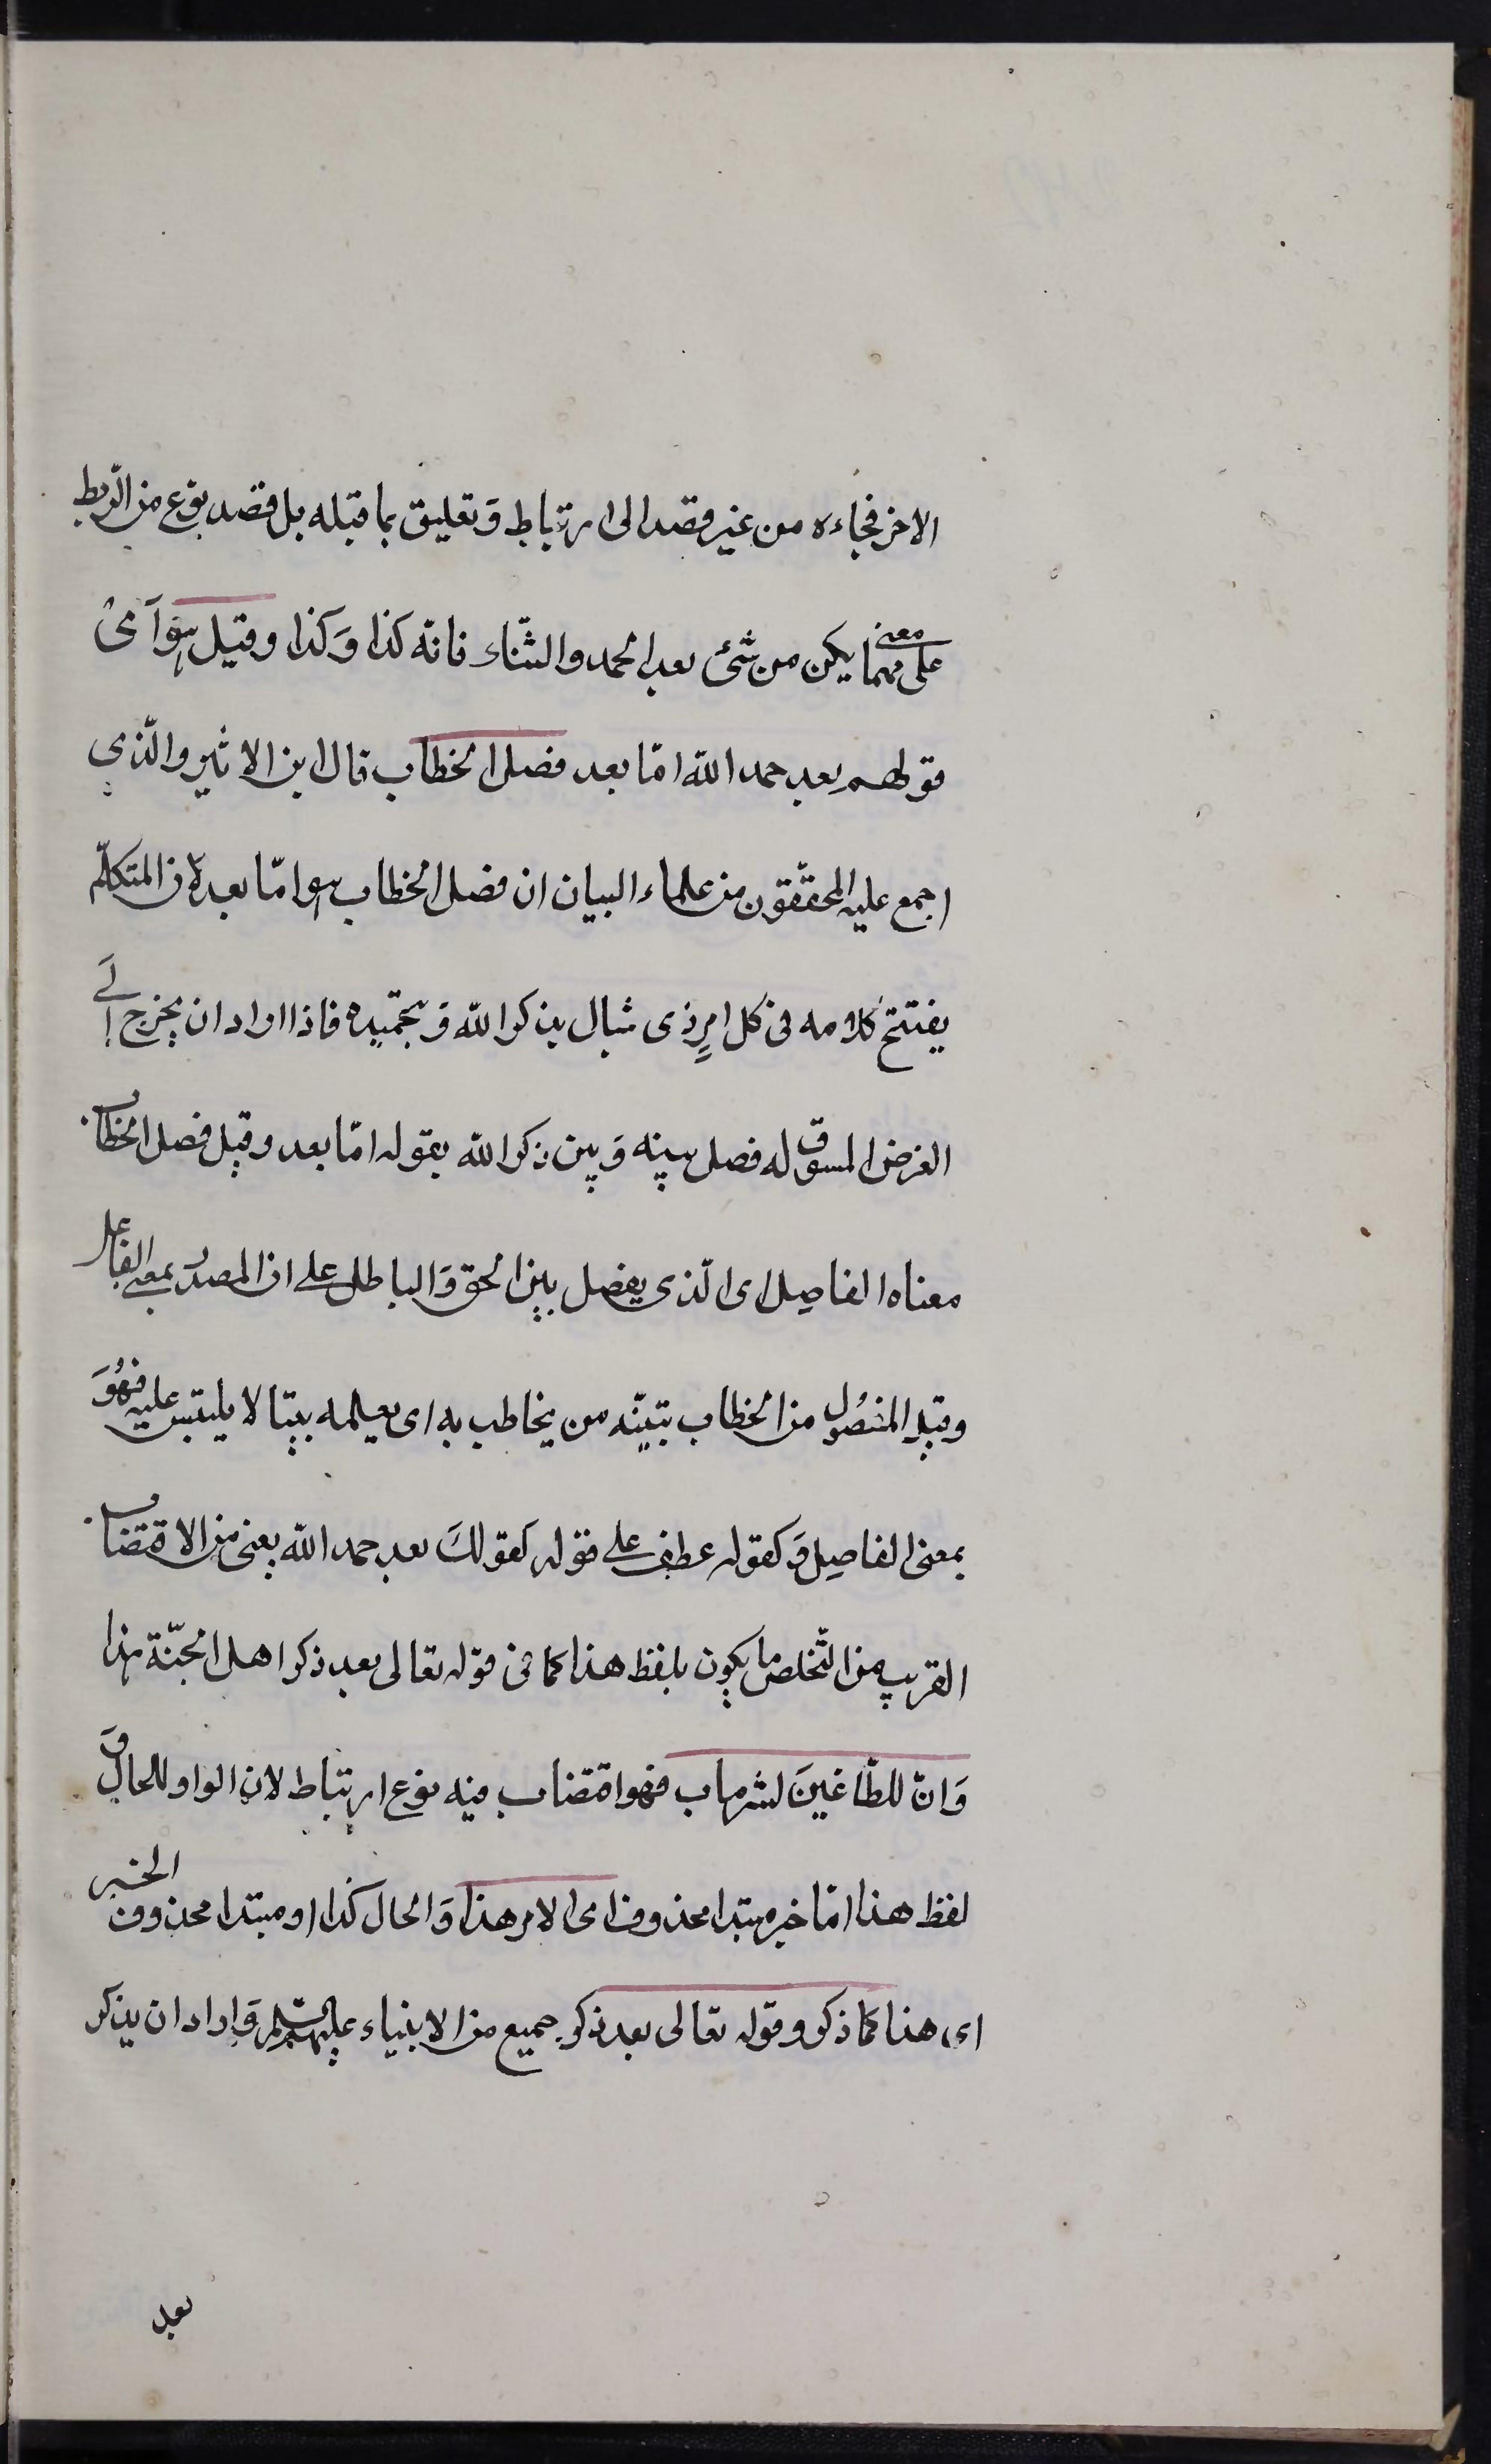 الاخر فجاءه من غير قصد الى ارتباط وَتعليق بما قبله بل قصد نوع من الرّبط
على معنى مهما يكن من شئ بعد الحمد والثّناء فانّه كذا وَكذا وقيل هو اى
قولهم بعد حمد الله امّا بعد فصل الخطاب قال ابن الاثير والّذى
اجمع عليه المحقّقون من علماء البيان ان فصل الخطاب هو امّا بعد لان المتكلّم
يفتتح كلامه فى كل امرٍ ذى شبال بذكر الله وَبتحميده فاذا اراد ان يخرج الَى
الغرض المسوق له فصل بينه وَبين ذكر الله بقوله امّا بعد وقيل فصل الخطاب
معناه الفاصِل اى الّذى يفصل بين الحق وَالباطل على ان المصدر بمعنى الفاعل
وقيل المفصُول من الخطاب تبيّنه من يخاطب به اى يعلمه بيّنا لا يلتبس عليه فهُوَ
بمعنى الفاصِل وَكقوله عطف على قوله كقولكَ بعد حمد الله يعنى من الاقتضاب
القريب من التّخلص ما يكون بلفظ هذا كما فى قوله تعالى بعد ذكر اهل الجنّة هذا
وَانّ للطّاغينَ لشر ماب فهو اقتضاب فيه نوع ارتباط لان الواو للحال وَ
لفظ هذا امّا خبر مبتدا محذوف اى الامر هذا وَالحال كذا او مبتدا محذوف الخبر
اى هذا كما ذكر وقوله تعالى بعد ذكر جميع من الانبياء عليهم السّلم وَاراد ان يذكر
بعد